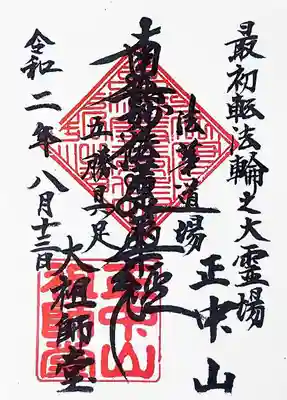 最初転法輪之大霊場
正中山
法華道場
南無妙法蓮華経
五勝具足
大祖師堂
令和二年八月十三日